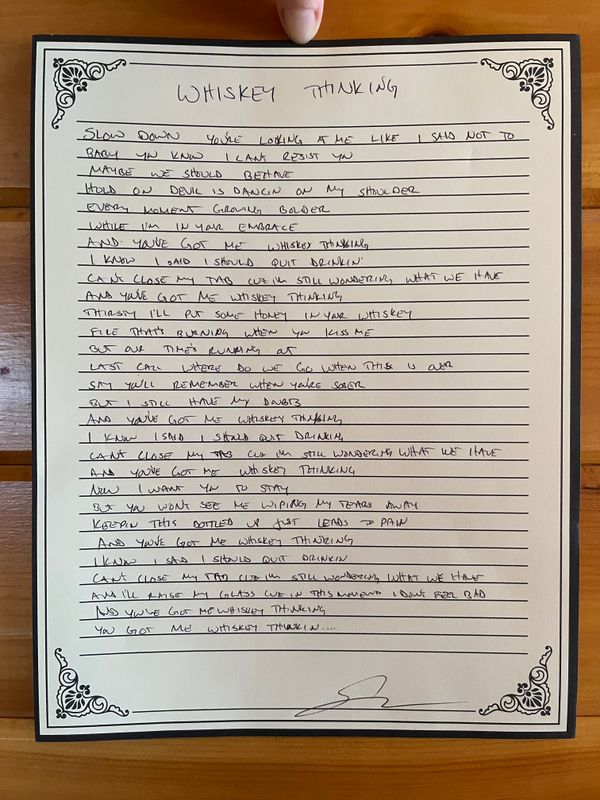 WHISKEY THINKING
SLOW DOWN YOU'RE LOOKING AT ME LIKE I SAID NOT TO
BABY YOU KNOW I CAN'T RESIST YOU
MAYBE WE SHOULD BEHAVE
HOLD ON DEVIL IS DANCIN ON MY SHOULDER
EVERY MOMENT GROWING BOLDER
WHILE I'M IN YOUR EMBRACE
AND YOU'VE GOT ME WHISKEY THINKING
I KNOW I SAID I SHOULD QUIT DRINKIN'
CAN'T CLOSE MY TAB CUZ I'M STILL WONDERING WHAT WE HAVE
AND YOU'VE GOT ME WHISKEY THINKING
THIRSTY I'LL PUT SOME HONEY IN YOUR WHISKEY
FIRE THAT'S BURNING WHEN YOU KISS ME
BUT OUR TIME'S RUNNING OUT
LAST CALL WHERE DO WE GO WHEN THIS IS OVER
SAY YOU'LL REMEMBER WHEN YOU'RE SOBER
BUT I STILL HAVE MY DOUBTS
AND YOU'VE GOT ME WHISKEY THINKING
I KNOW I SAID I SHOULD QUIT DRINKING
CAN'T CLOSE MY TAB CUZ I'M STILL WONDERING WHAT WE HAVE
AND YOU'VE GOT ME WHISKEY THINKING
NOW I WANT YOU TO STAY
BUT YOU WON'T SEE ME WIPING MY TEARS AWAY
KEEPIN THIS BOTTLED UP JUST LEADS TO PAIN
AND YOU'VE GOT ME WHISKEY THINKING
I KNOW I SAID I SHOULD QUIT DRINKIN
CAN'T CLOSE MY TAB CUZ I'M STILL WONDERING WHAT WE HAVE
AND I'LL RAISE MY GLASS CUZ IN THIS MOMENT I DON'T FEEL BAD
AND YOU'VE GOT ME WHISKEY THINKING
YOU GOT ME WHISKEY THINKIN....